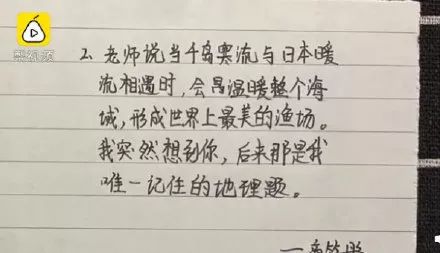 梨视频
2. 老师说当千岛寒流与日本暖
流相遇时,会温暖整个海
域,形成世界上最美的渔场。
我突然想到你,后来那是我
唯一记住的地理题。